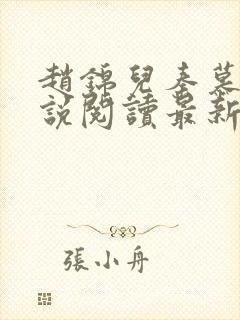 趙錦兒秦慕
說閱讀最新
張小舟